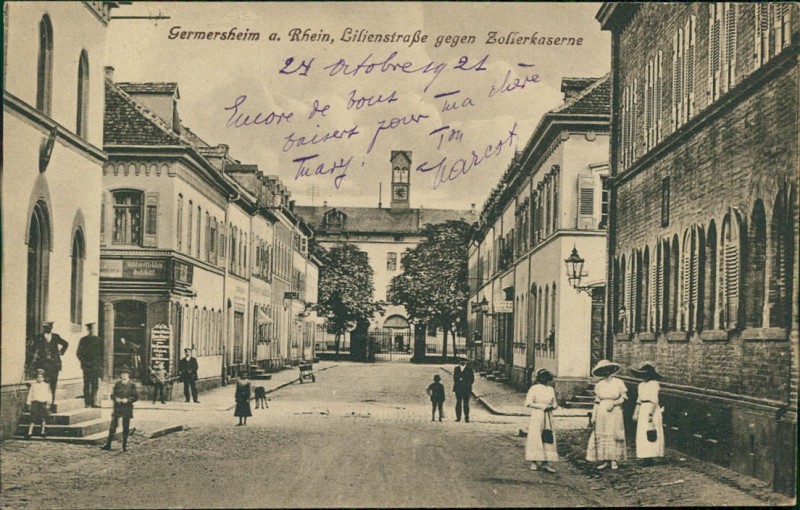 Germersheim a. Rhein, Lilienstraße gegen Zollerkaserne
27 octobre 1921
Encore de bons
baisers pour ma chère
Mary. Ton
Marcot